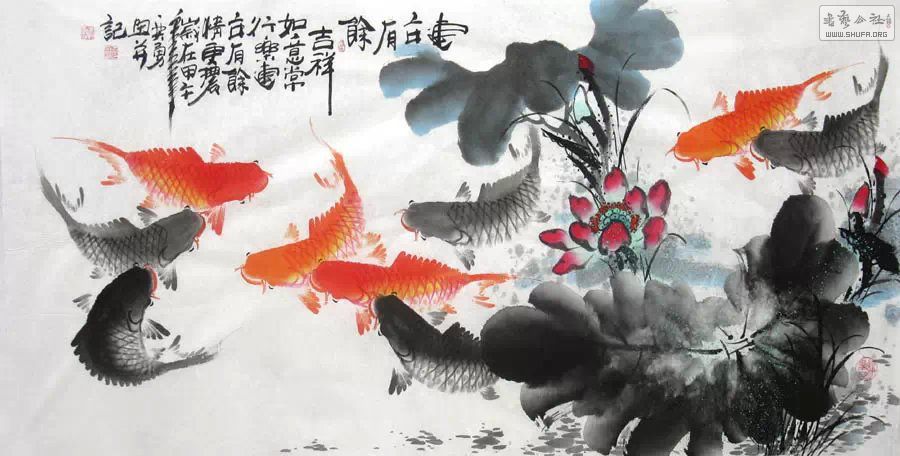 連年有餘
吉祥
如意常
行樂連
年有餘
情更濃
歲在甲午
年
記
書藝公社
WWW.SHUFA.ORG